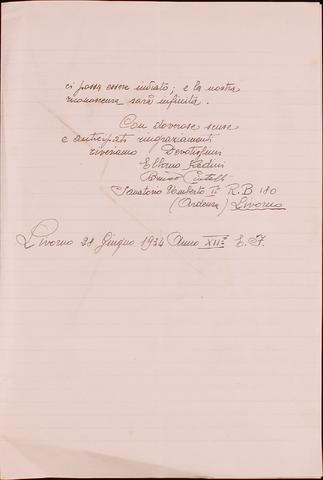 ci possa essere indicato; e la nostra
riconoscenza sarà infinita.
Con doverose scuse
e anticipati ringraziamenti
Devotissimi
Sanatorio Umberto I° R. B 180
(Ardenza) Livorno
Livorno 28 Giugno 1934 Anno XII° E. F.